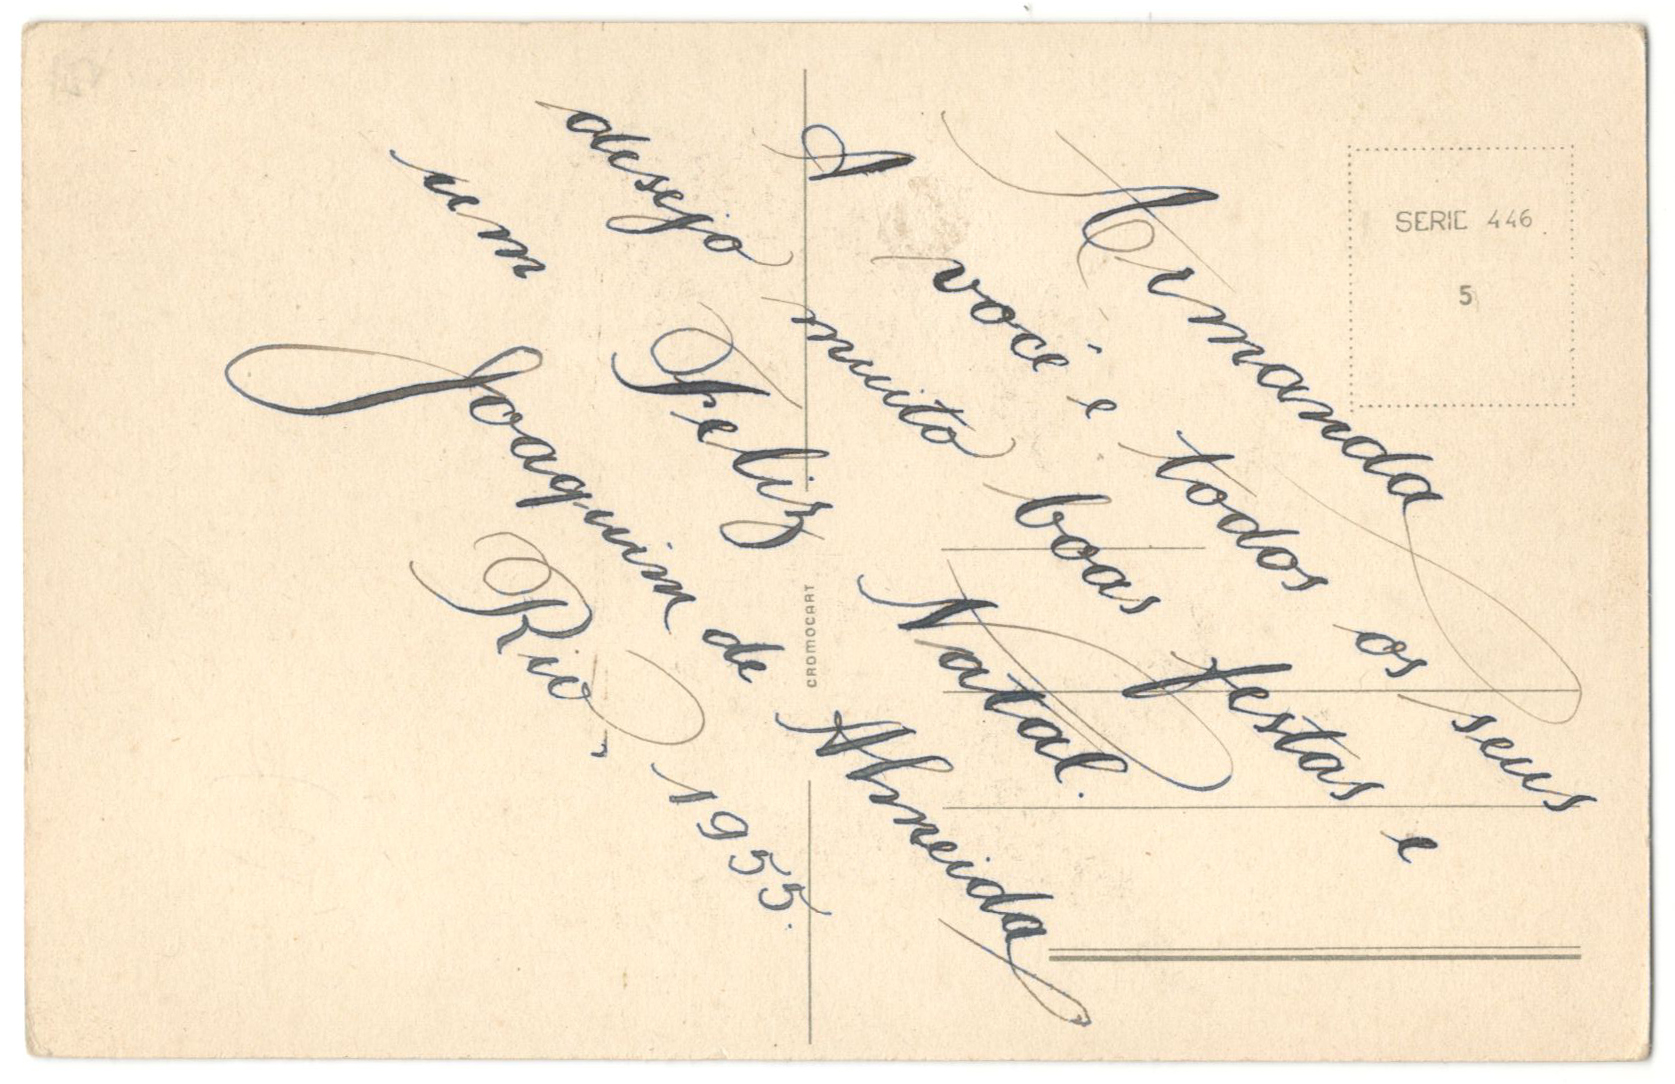 Armanda
A você e todos os seus
desejo muito boas festas e
um Feliz Natal.
Joaquim de Almeida
Rio, 1955.
SERIE 446
5
CROMOCART